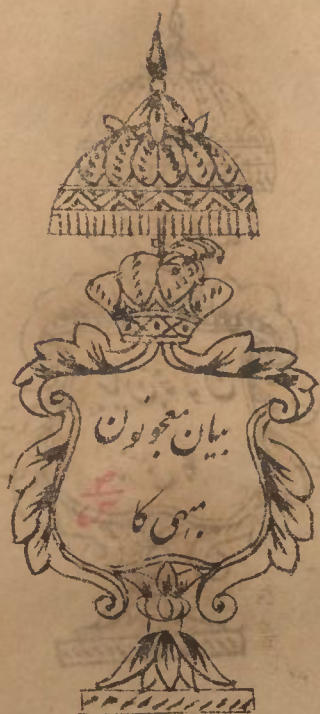 بیان معجونون
مبہی کا